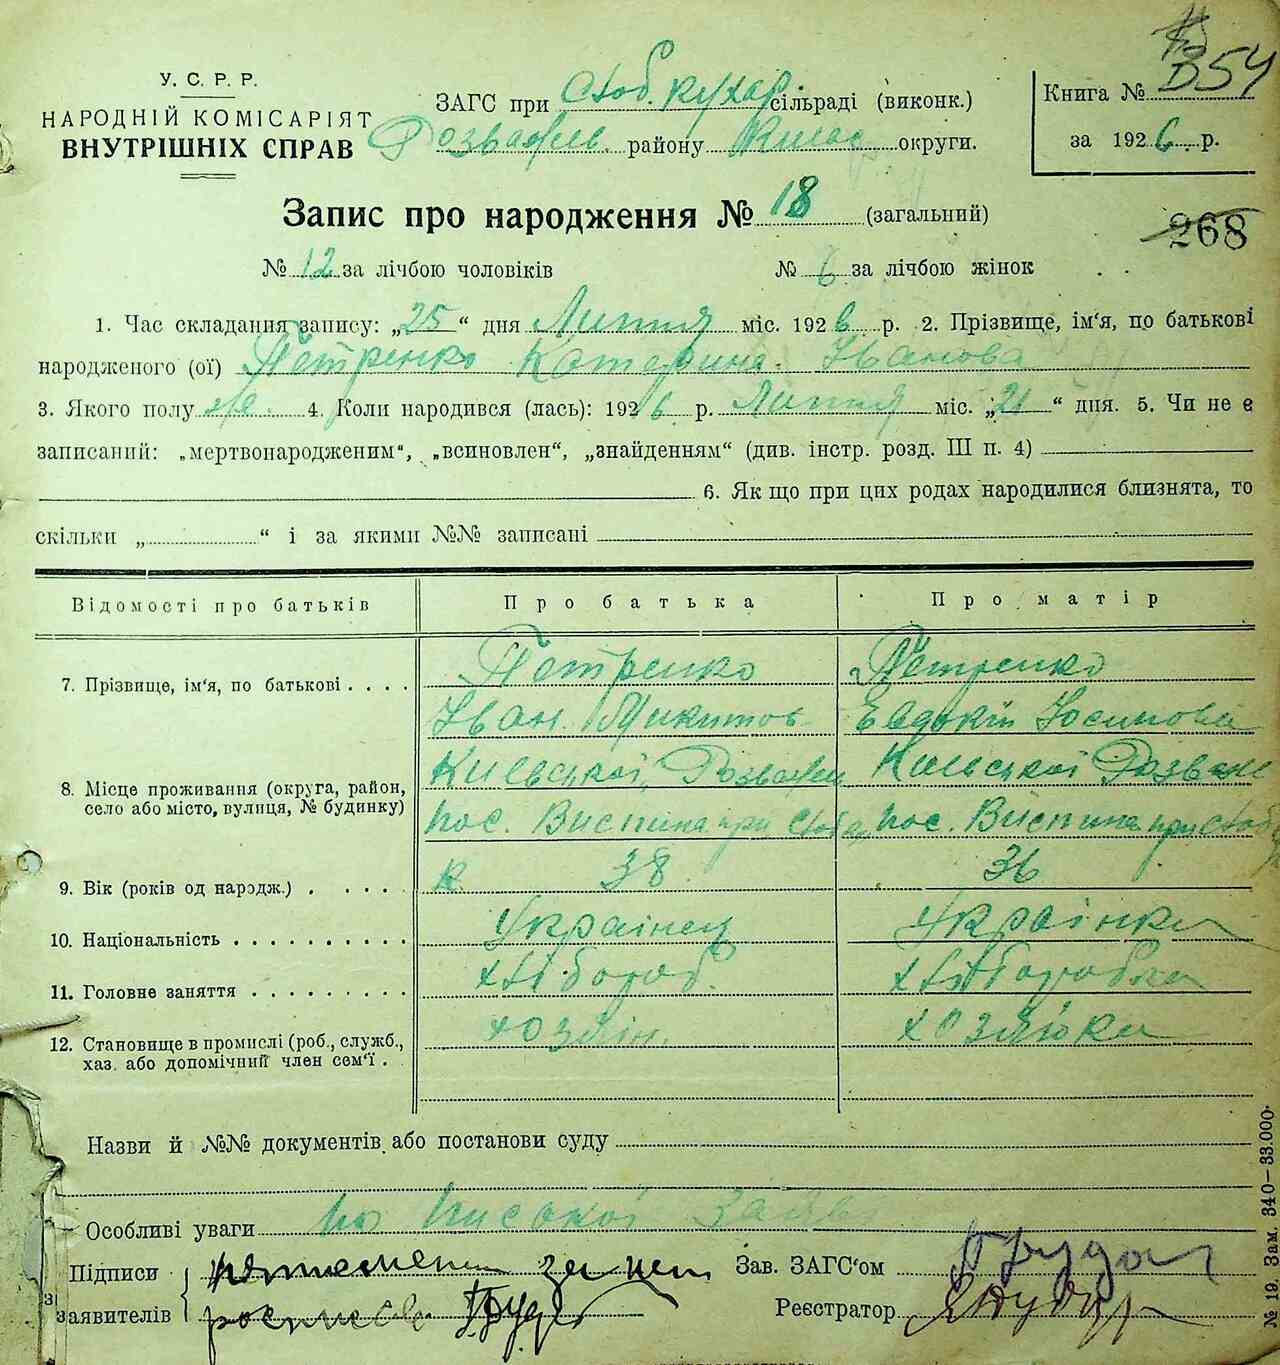 У. С. Р. Р.
НАРОДНІЙ КОМІСАРІЯТ
ВНУТРІШНІХ СПРАВ
ЗАГС при Стоб. Кухар. сільраді (виконк.)
Розважев. району Київс. округи.
Книга № D54
за 1926 р.
Запис про народження № 18 (загальний)
268
№ 12 за лічбою чоловіків № 6 за лічбою жінок
1. Час складання запису: „25“ дня Липня міс. 1926 р. 2. Прізвище, ім'я, по батькові
народженого (ої) Петренко Катерина Іванова
3. Якого полу 4. Коли народився (лась): 1926 р. Липня міс. „21“ дня. 5. Чи не є
записаний: „мертвонародженим“, „всиновлен“, „знайденням“ (див. інстр. розд. III п. 4)
6. Як що при цих родах народилися близнята, то
скільки „ “ і за якими №№ записані
Відомості про батьків Про батька Про матір
7. Прізвище, ім'я, по батькові . . . . Петренко Петренко
Іван Микитов Евдокія Иосипова
8. Місце проживання (округа, район, село або місто, вулиця, № будинку) Киевської, Розважев Киевської Розваж
пос. Виспина при Стоб пос. Виспина при Стоб
9. Вік (років од народж.) . . . . . к 38 36
10. Національність . . . . . . . . . . Українец Українка
11. Головне заняття . . . . . . . . . хлібороб. хліборобка
12. Становище в промислі (роб., служб., хаз. або допомічний член сем'ї . хозяїн. хозяюка
Назви й №№ документів або постанови суду
Особливі уваги по
Підписи
заявителів
за
Зав. ЗАГС'ом
Реєстратор
№ 19. Зам. 340–33.000.